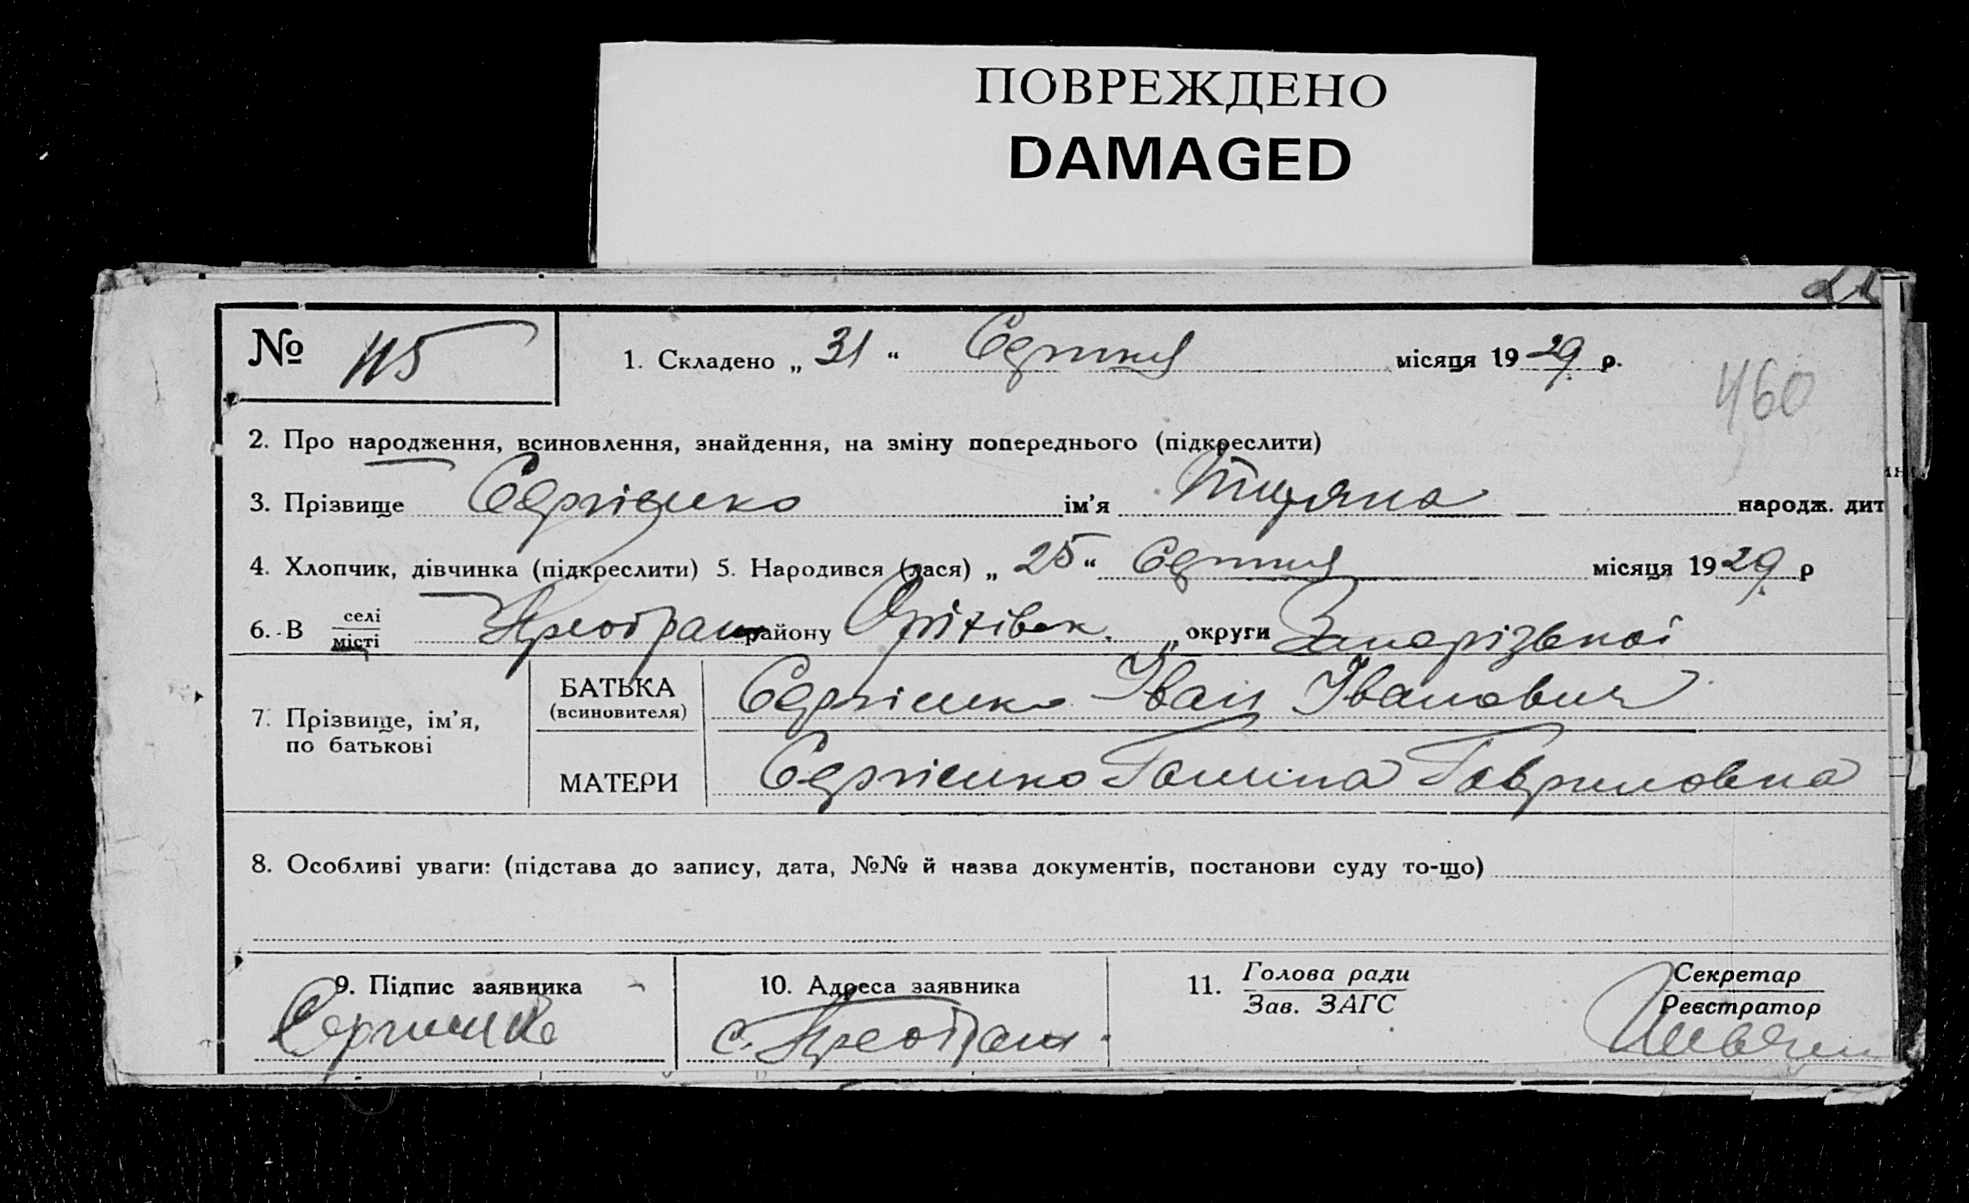 ПОВРЕЖДЕНО
DAMAGED
№ 115 1. Складено „ 31 “ Серпня місяця 1929 р.
460
2. Про народження, всиновлення, знайдення, на зміну попереднього (підкреслити)
3. Прізвище Сергієнко ім’я народж. дит
4. Хлопчик, дівчинка (підкреслити) 5. Народився (лася) „ 25 “ Серпня місяця 1929 р
6. В селі місті Преображ району Оріхівськ. „ округи Запорізької
7. Прізвище, ім’я, по батькові
БАТЬКА (всиновителя) Сергієнко Іван Іванович
МАТЕРИ Сергієнко Ганна Гавриловна
8. Особливі уваги: (підстава до запису, дата, №№ й назва документів, постанови суду то-що)
9. Підпис заявника 10. Адреса заявника 11. Голова ради Секретар
Зав. ЗАГС Реєстратор
Сергиенко с. Преображ.